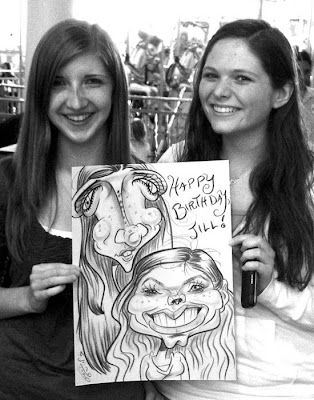 HAPPY
BIRTHDAY,
JILL!